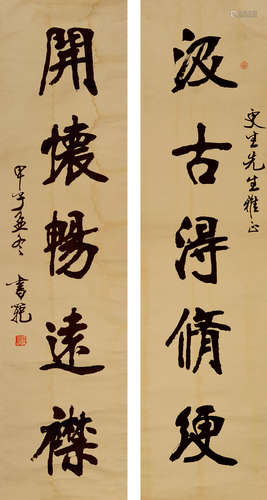 汲古得脩綆
更生先生雅正
開懷暢遠襟
甲子孟冬
書範